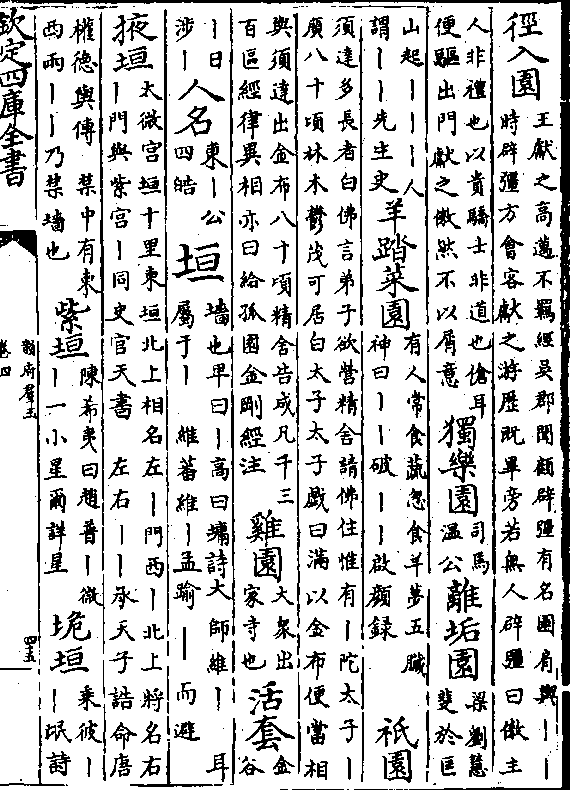 徑入園
王獻之高邁不羈經吳郡聞顧辟疆有名園肩輿｜｜
時辟疆方會客獻之游歷既畢旁若無人辟疆曰傲主
人非禮也以貴驕士非道也傖耳
便驅出門獻之傲然不以屑意
獨樂園
司馬
溫公
離垢園
梁劉慧
斐於匡
山起｜｜｜｜人
謂｜｜先生史
羊踏菜園
有人常食蔬忽食羊夢五臟
神曰｜｜破｜｜啟顏録
祇園
須達多長者白佛言弟子欲營精舍請佛住惟有｜陀太子｜
廣八十頃林木鬱茂可居白太子太子戲曰滿以金布便當相
與須達出金布八十頃精舍告成凡千三
百區經律異相亦曰給孤園金剛經注
雞園
大衆出
家寺也
活套
金
谷
｜日
涉｜
人名
東｜公
四皓
垣
墻也卑曰｜高曰墉詩大師維｜耳
屬于｜ 維蕃維｜孟踰｜｜而避
掖垣
太微宮垣十里東垣北上相名左｜門西｜北上將名右
｜門與紫宮｜同史官天書 左右｜｜承天子誥命唐
權德輿傳 禁中有東
西兩｜｜乃禁墻也
紫垣
陳希夷曰趙普｜微
｜一小星爾詳星
垝垣
乘彼｜
｜氓詩
欽定四庫全書
韻府羣玉
卷四
四五